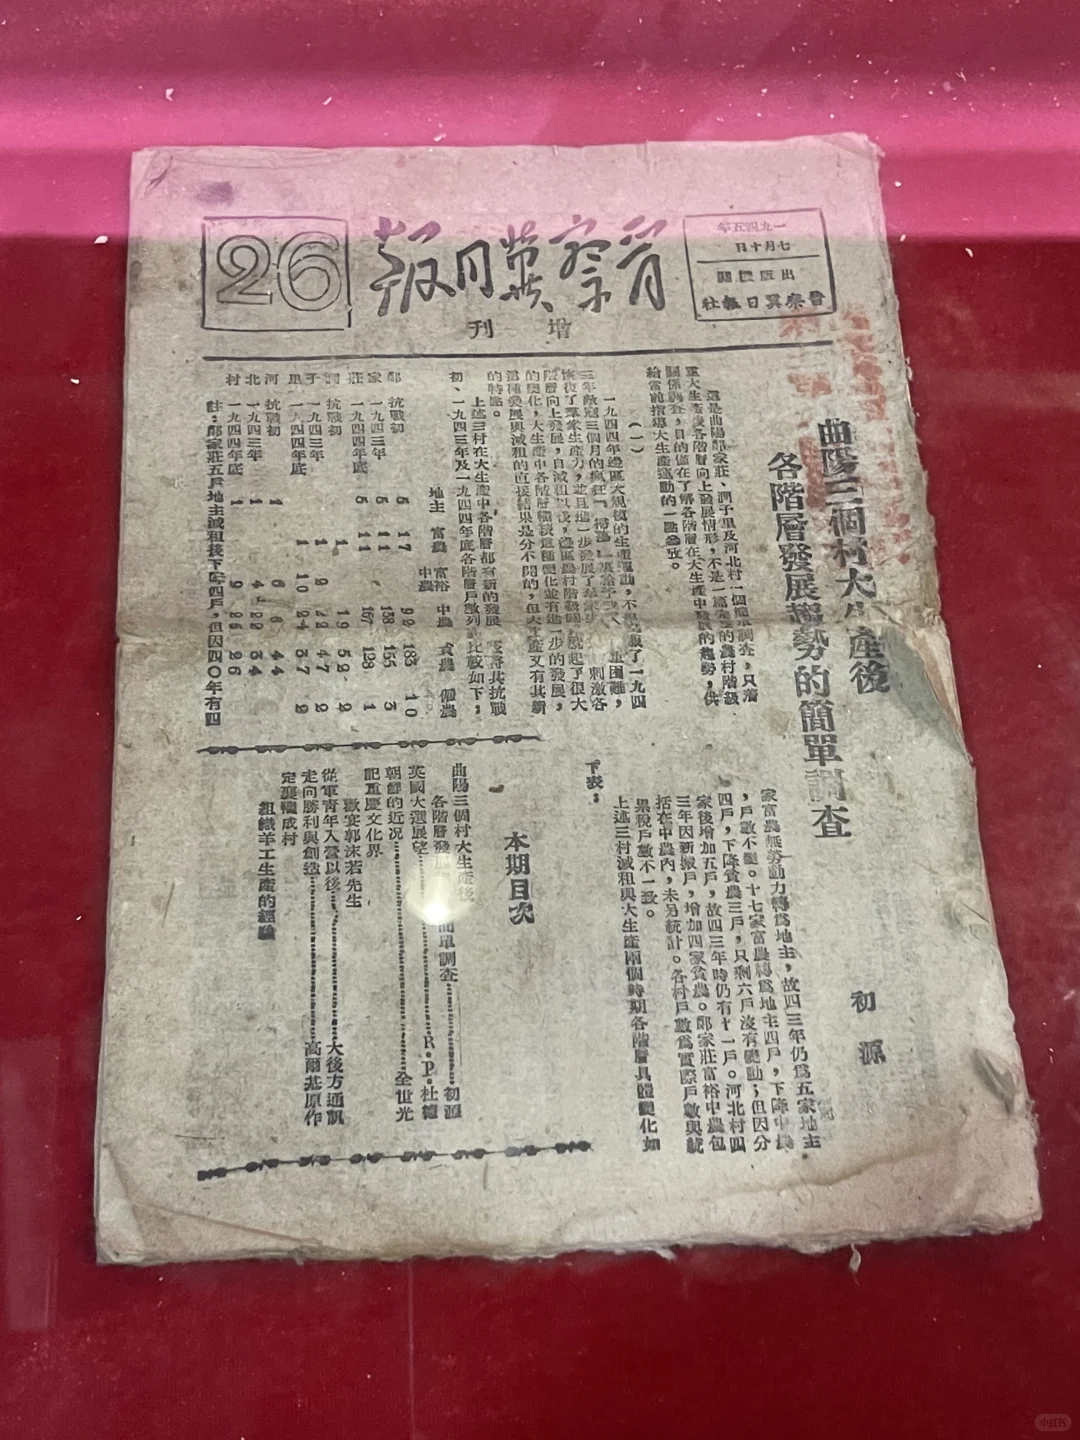 晉察冀日報
增刊
26
一九四五年
七月十日
出版機關
晉察冀日報社
曲陽三個村大生產後
各階層發展趨勢的簡單調查
初源
這是曲陽郎家莊、澗子里及河北村一個簡單調查,只着
重大生產後各階層向上發展情形,不是一篇完整的農村階級
關係調查,目的僅在了解各階層在大生產中發展的趨勢,供
給當前指導大生產運動的一點參攷。
(一)
一九四四年邊區大規模的生產運動,不但克服了一九四
三年敵寇三個月的瘋狂『掃蕩』
恢復了羣衆生產力,並且進一步發展了 刺激各
階層向上發展,自減租以後,邊區農村階級關係就起了很大
的變化,大生產中各階層繼續這種變化並有進一步的發展,
這種發展與減租的直接結果是分不開的,但大生產又有其新
的特點。
上述三村在大生產中各階層都有新的發展 將其抗戰
初、一九四三年及一九四四年底各階層戶數列表比較如下:
地主 富農 富裕中農 中農 貧農 僱農
郎家莊 抗戰初 5 17 92 183 10
一九四三年 5 11 138 155 3
一九四四年底 5 11 157 128 1
澗子里 抗戰初 1 19 52 2
一九四三年 1 2 22 47 2
一九四四年底 1 10 24 37 2
河北村 抗戰初 1 6 6 44
一九四三年 1 4 22 34
一九四四年底 1 9 25 26
註:郎家莊五戶地主減租後下降四戶,但因四〇年有四
家富農無勞動力轉爲地主,故四三年仍爲五家地主
,戶數不變。十七家富農轉爲地主四戶,下降中農
四戶,下降貧農三戶,只剩六戶沒有變動;但因分
家後增加五戶,故四三年時仍有十一戶。河北村四
三年因新搬戶,增加四家貧農。郎家莊富裕中農包
括在中農內,未另統計。各村戶數爲實際戶數與統
累稅戶數不一致。
上述三村減租與大生產兩個時期各階層具體變化如
下表:
本期目次
曲陽三個村大生產後
各階層發 簡單調查………初源
英國大選展望………R.P.杜德
朝鮮的近況………全世光
記重慶文化界
歡宴郭沫若先生
從軍青年入營以後………大後方通訊
走向勝利與創造………高爾基原作
定襄 成村
組織羊工生產的經驗